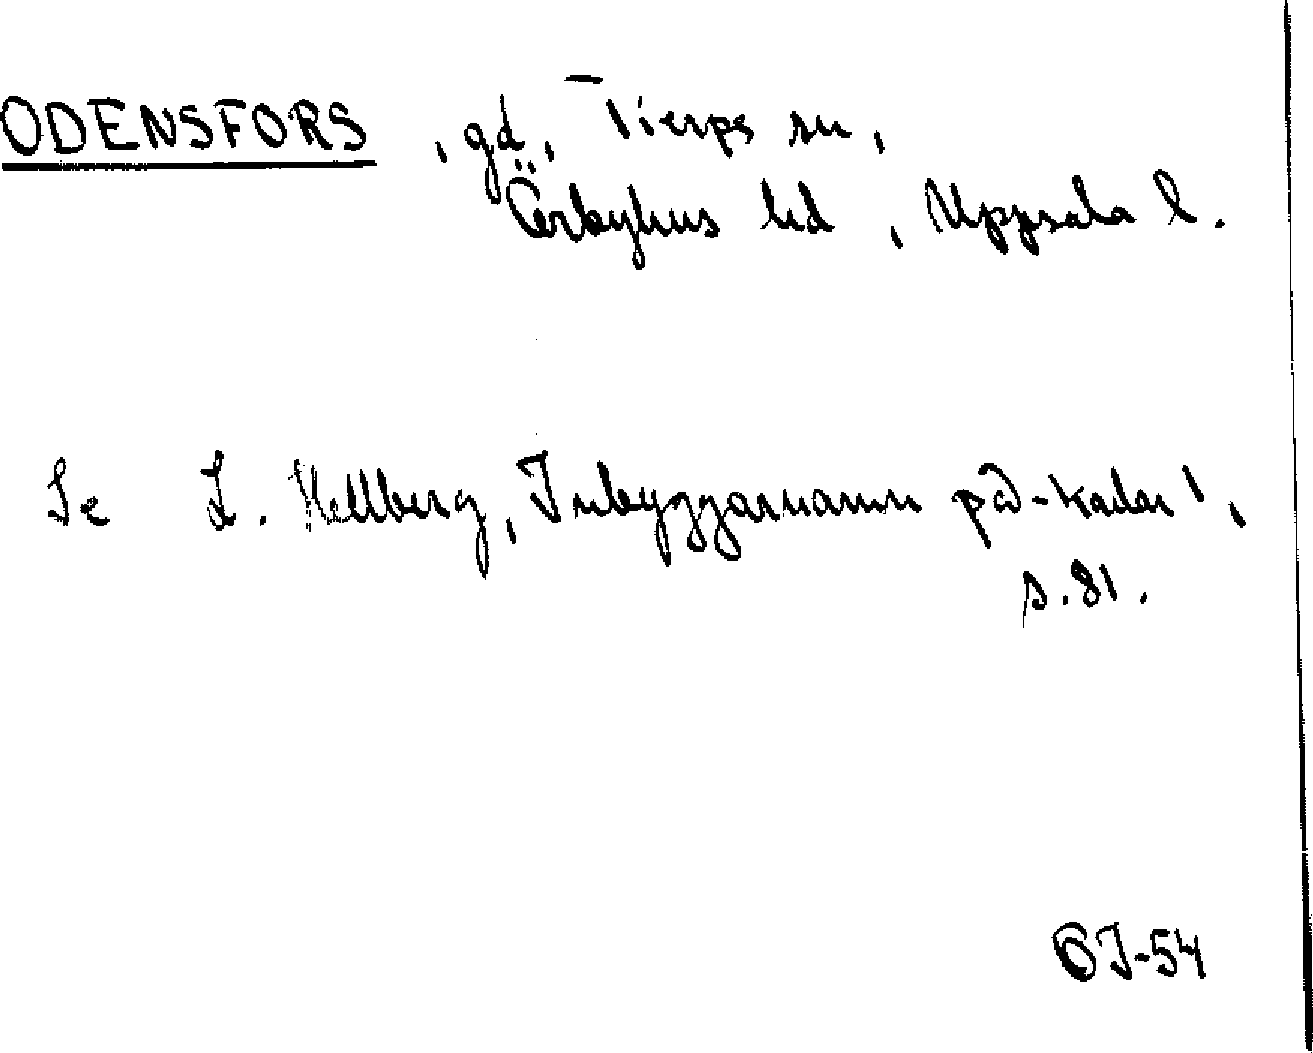 ODENSFORS, gd, Tierps sn,
Örbyhus hd, Uppsala l.
Se L. Hellberg, Inbyggarnamn på -karlar,
s. 81.
OJ-54